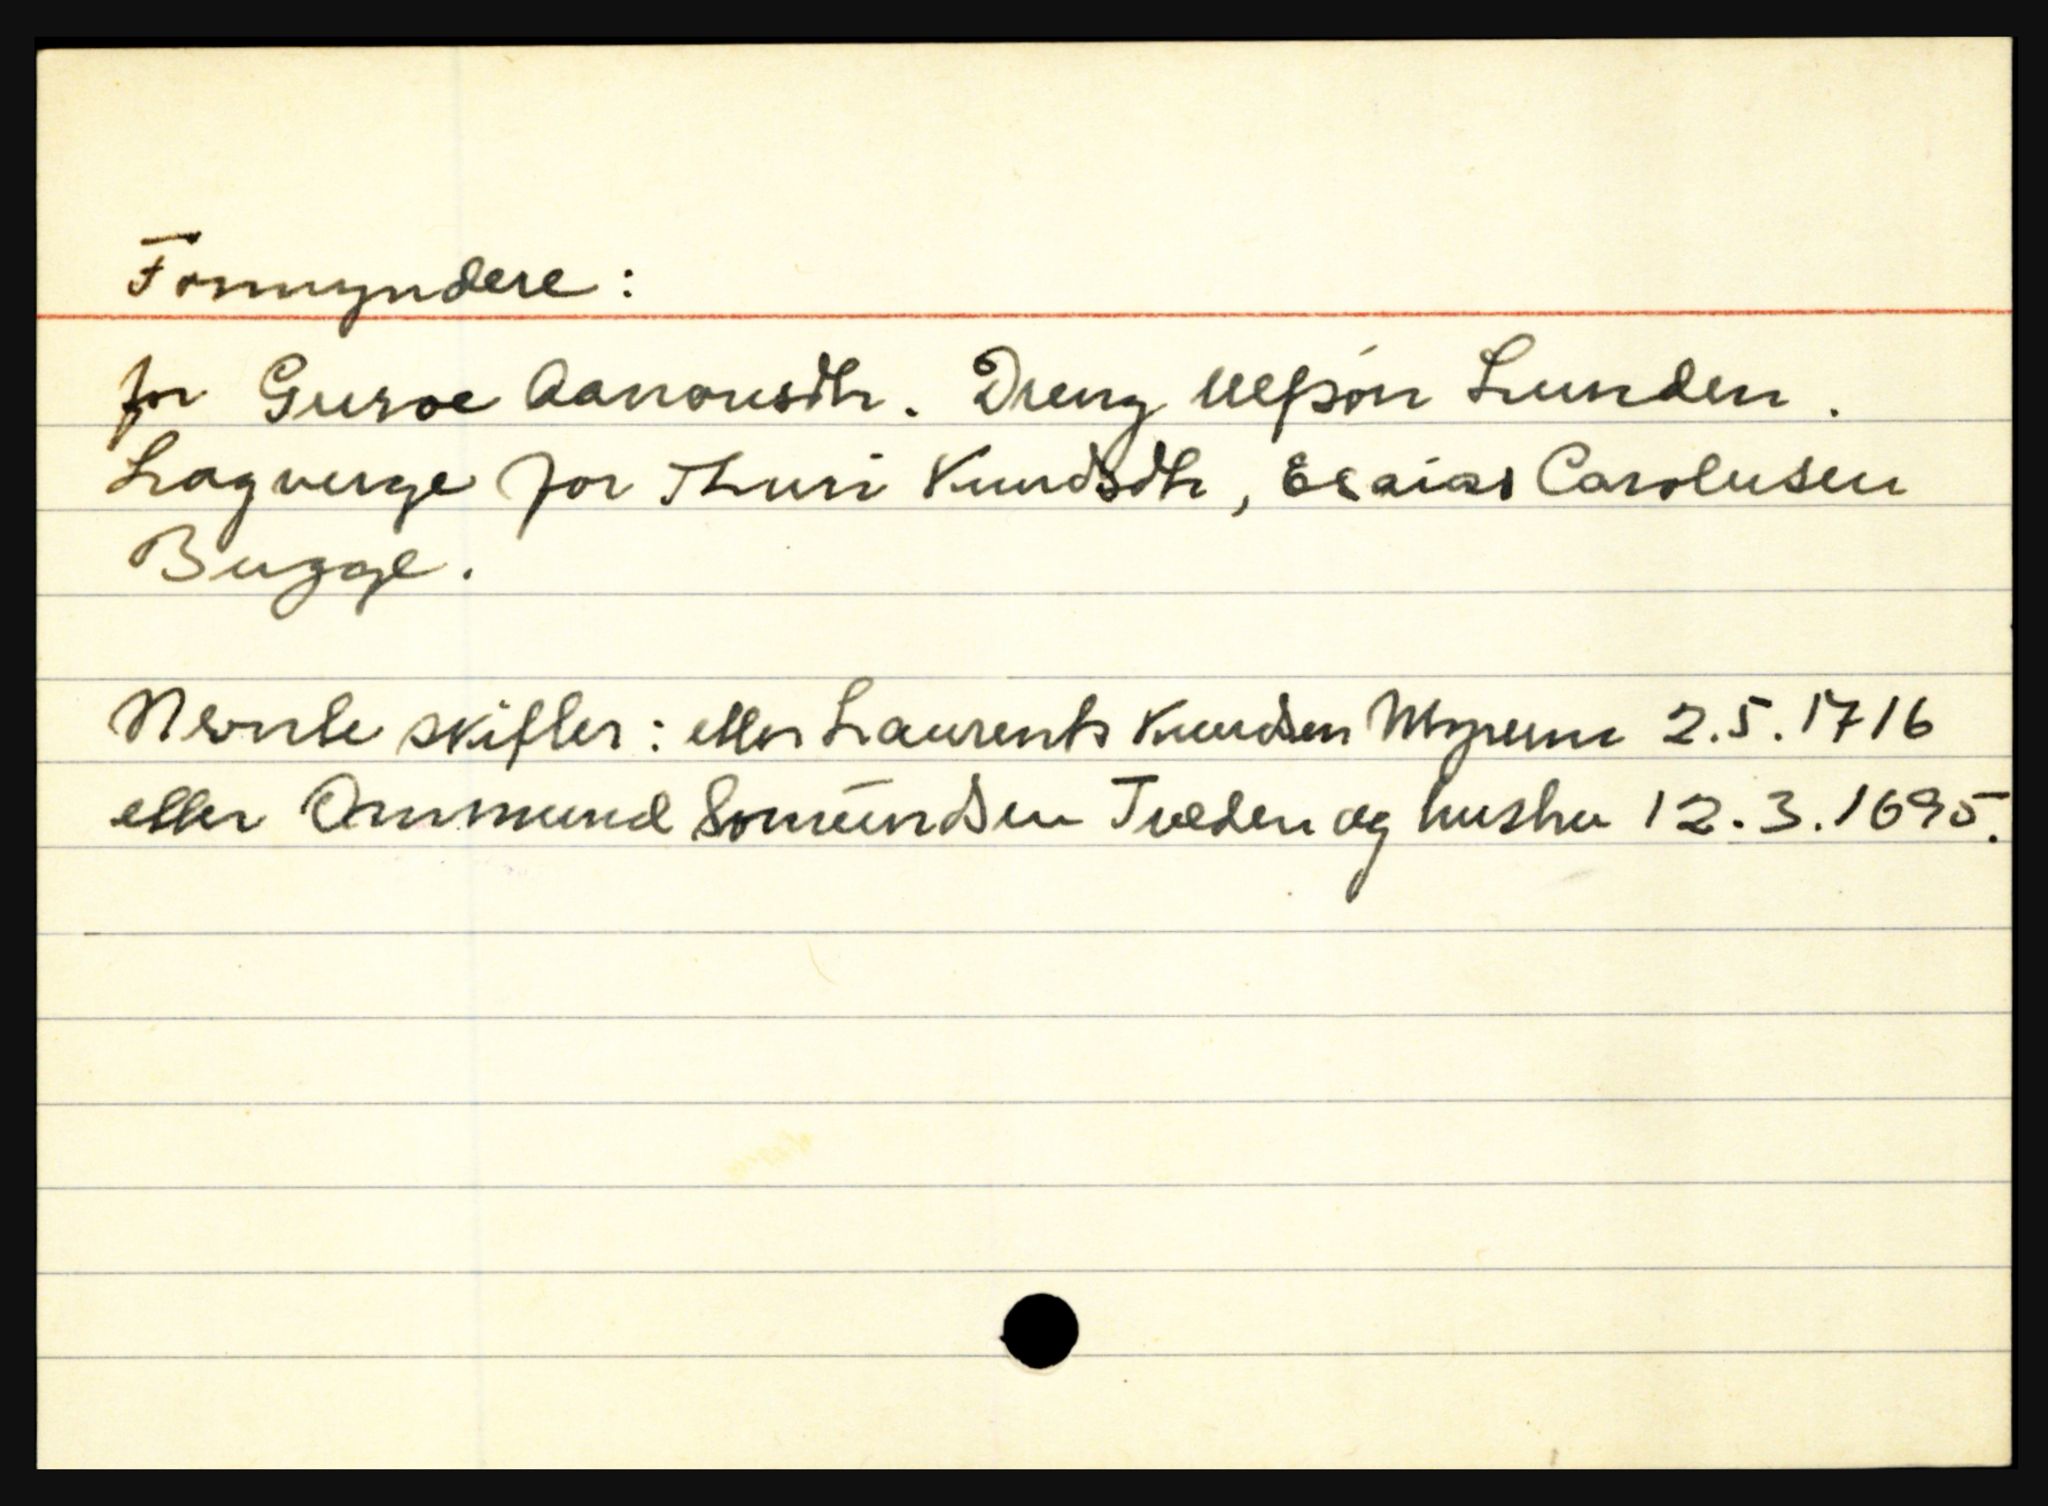 Formyndere:
for Guroe Aanonsdtr. Dreng Ulfsøn Lunden.
Lagverge for Thuri Knudsdtr, Esaias Carolusen
Bugge.
Nevnte skifter: etter Laurents Knudsen Myrene 2.5.1716
etter Ommund Somundsen Tveden og hustru 12.3.1695.